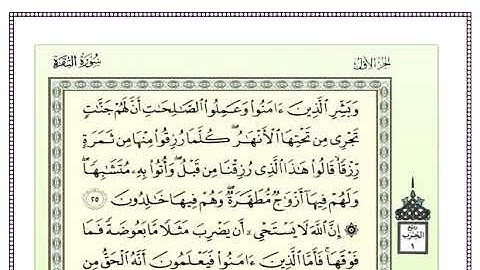 الجزء الأول
سورة البقرة
وَبَشِّرِ ٱلَّذِينَ ءَامَنُوا۟ وَعَمِلُوا۟ ٱلصَّـٰلِحَـٰتِ أَنَّ لَهُمْ جَنَّـٰتٍ
تَجْرِى مِن تَحْتِهَا ٱلْأَنْهَـٰرُ ۖ كُلَّمَا رُزِقُوا۟ مِنْهَا مِن ثَمَرَةٍ
رِّزْقًا ۙ قَالُوا۟ هَـٰذَا ٱلَّذِى رُزِقْنَا مِن قَبْلُ ۖ وَأُتُوا۟ بِهِۦ مُتَشَـٰبِهًا ۖ
وَلَهُمْ فِيهَآ أَزْوَٰجٌ مُّطَهَّرَةٌ ۖ وَهُمْ فِيهَا خَـٰلِدُونَ ٢٥
۞ إِنَّ ٱللَّهَ لَا يَسْتَحْىِۦٓ أَن يَضْرِبَ مَثَلًا مَّا بَعُوضَةً فَمَا
فَوْقَهَا ۚ فَأَمَّا ٱلَّذِينَ ءَامَنُوا۟ فَيَعْلَمُونَ أَنَّهُ ٱلْحَقُّ مِن
ربع
الحزب
١